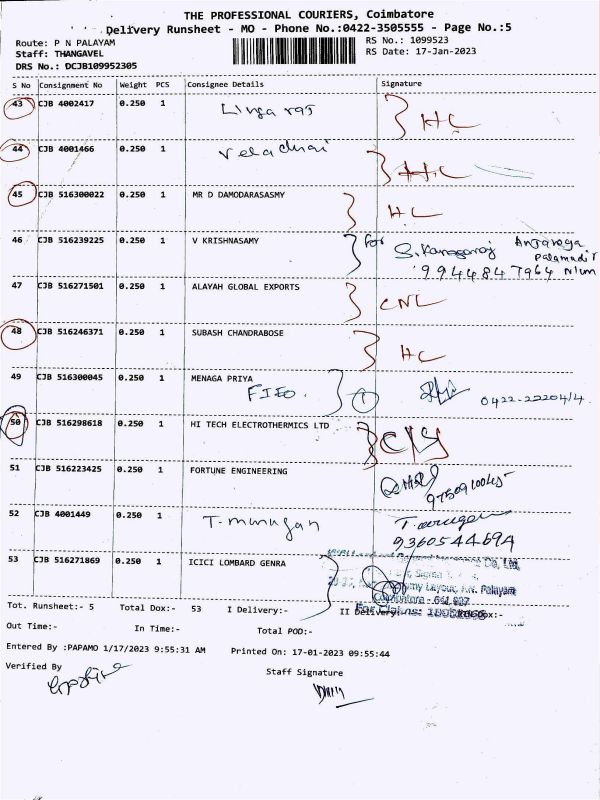 THE PROFESSIONAL COURIERS, Coimbatore
Delivery Runsheet - MO - Phone No.:0422-3505555 - Page No.:5
Route: P N PALAYAM RS No.: 1099523
Staff: THANGAVEL RS Date: 17-Jan-2023
DRS No.: DCJB109952305
S No Consignment No Weight PCS Consignee Details Signature
43 CJB 4002417 0.250 1 Lingaraj HC
44 CJB 4001466 0.250 1 Veladhai HC
45 CJB 516300022 0.250 1 MR D DAMODARASASMY HC
46 CJB 516239225 0.250 1 V KRISHNASAMY for S. Kanagaraj
9944847964
47 CJB 516271501 0.250 1 ALAYAH GLOBAL EXPORTS CNL
48 CJB 516246371 0.250 1 SUBASH CHANDRABOSE HC
49 CJB 516300045 0.250 1 MENAGA PRIYA
FIEO. 1 0422-22204/4.
50 CJB 516298618 0.250 1 HI TECH ELECTROTHERMICS LTD
51 CJB 516223425 0.250 1 FORTUNE ENGINEERING
52 CJB 4001449 0.250 1 T. murugan T. murugan
9360544694
53 CJB 516271869 0.250 1 ICICI LOMBARD GENRA Co. Ltd.
Layout, P.N. Palayam
Coimbatore - 641 037
Tot. Runsheet:- 5 Total Dox:- 53 I Delivery:- II Delivery:-
Out Time:- In Time:- Total POD:-
Entered By :PAPAMO 1/17/2023 9:55:31 AM Printed On: 17-01-2023 09:55:44
Verified By Staff Signature